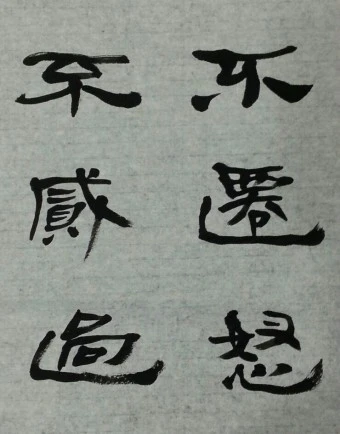 不遷怒
不貳過